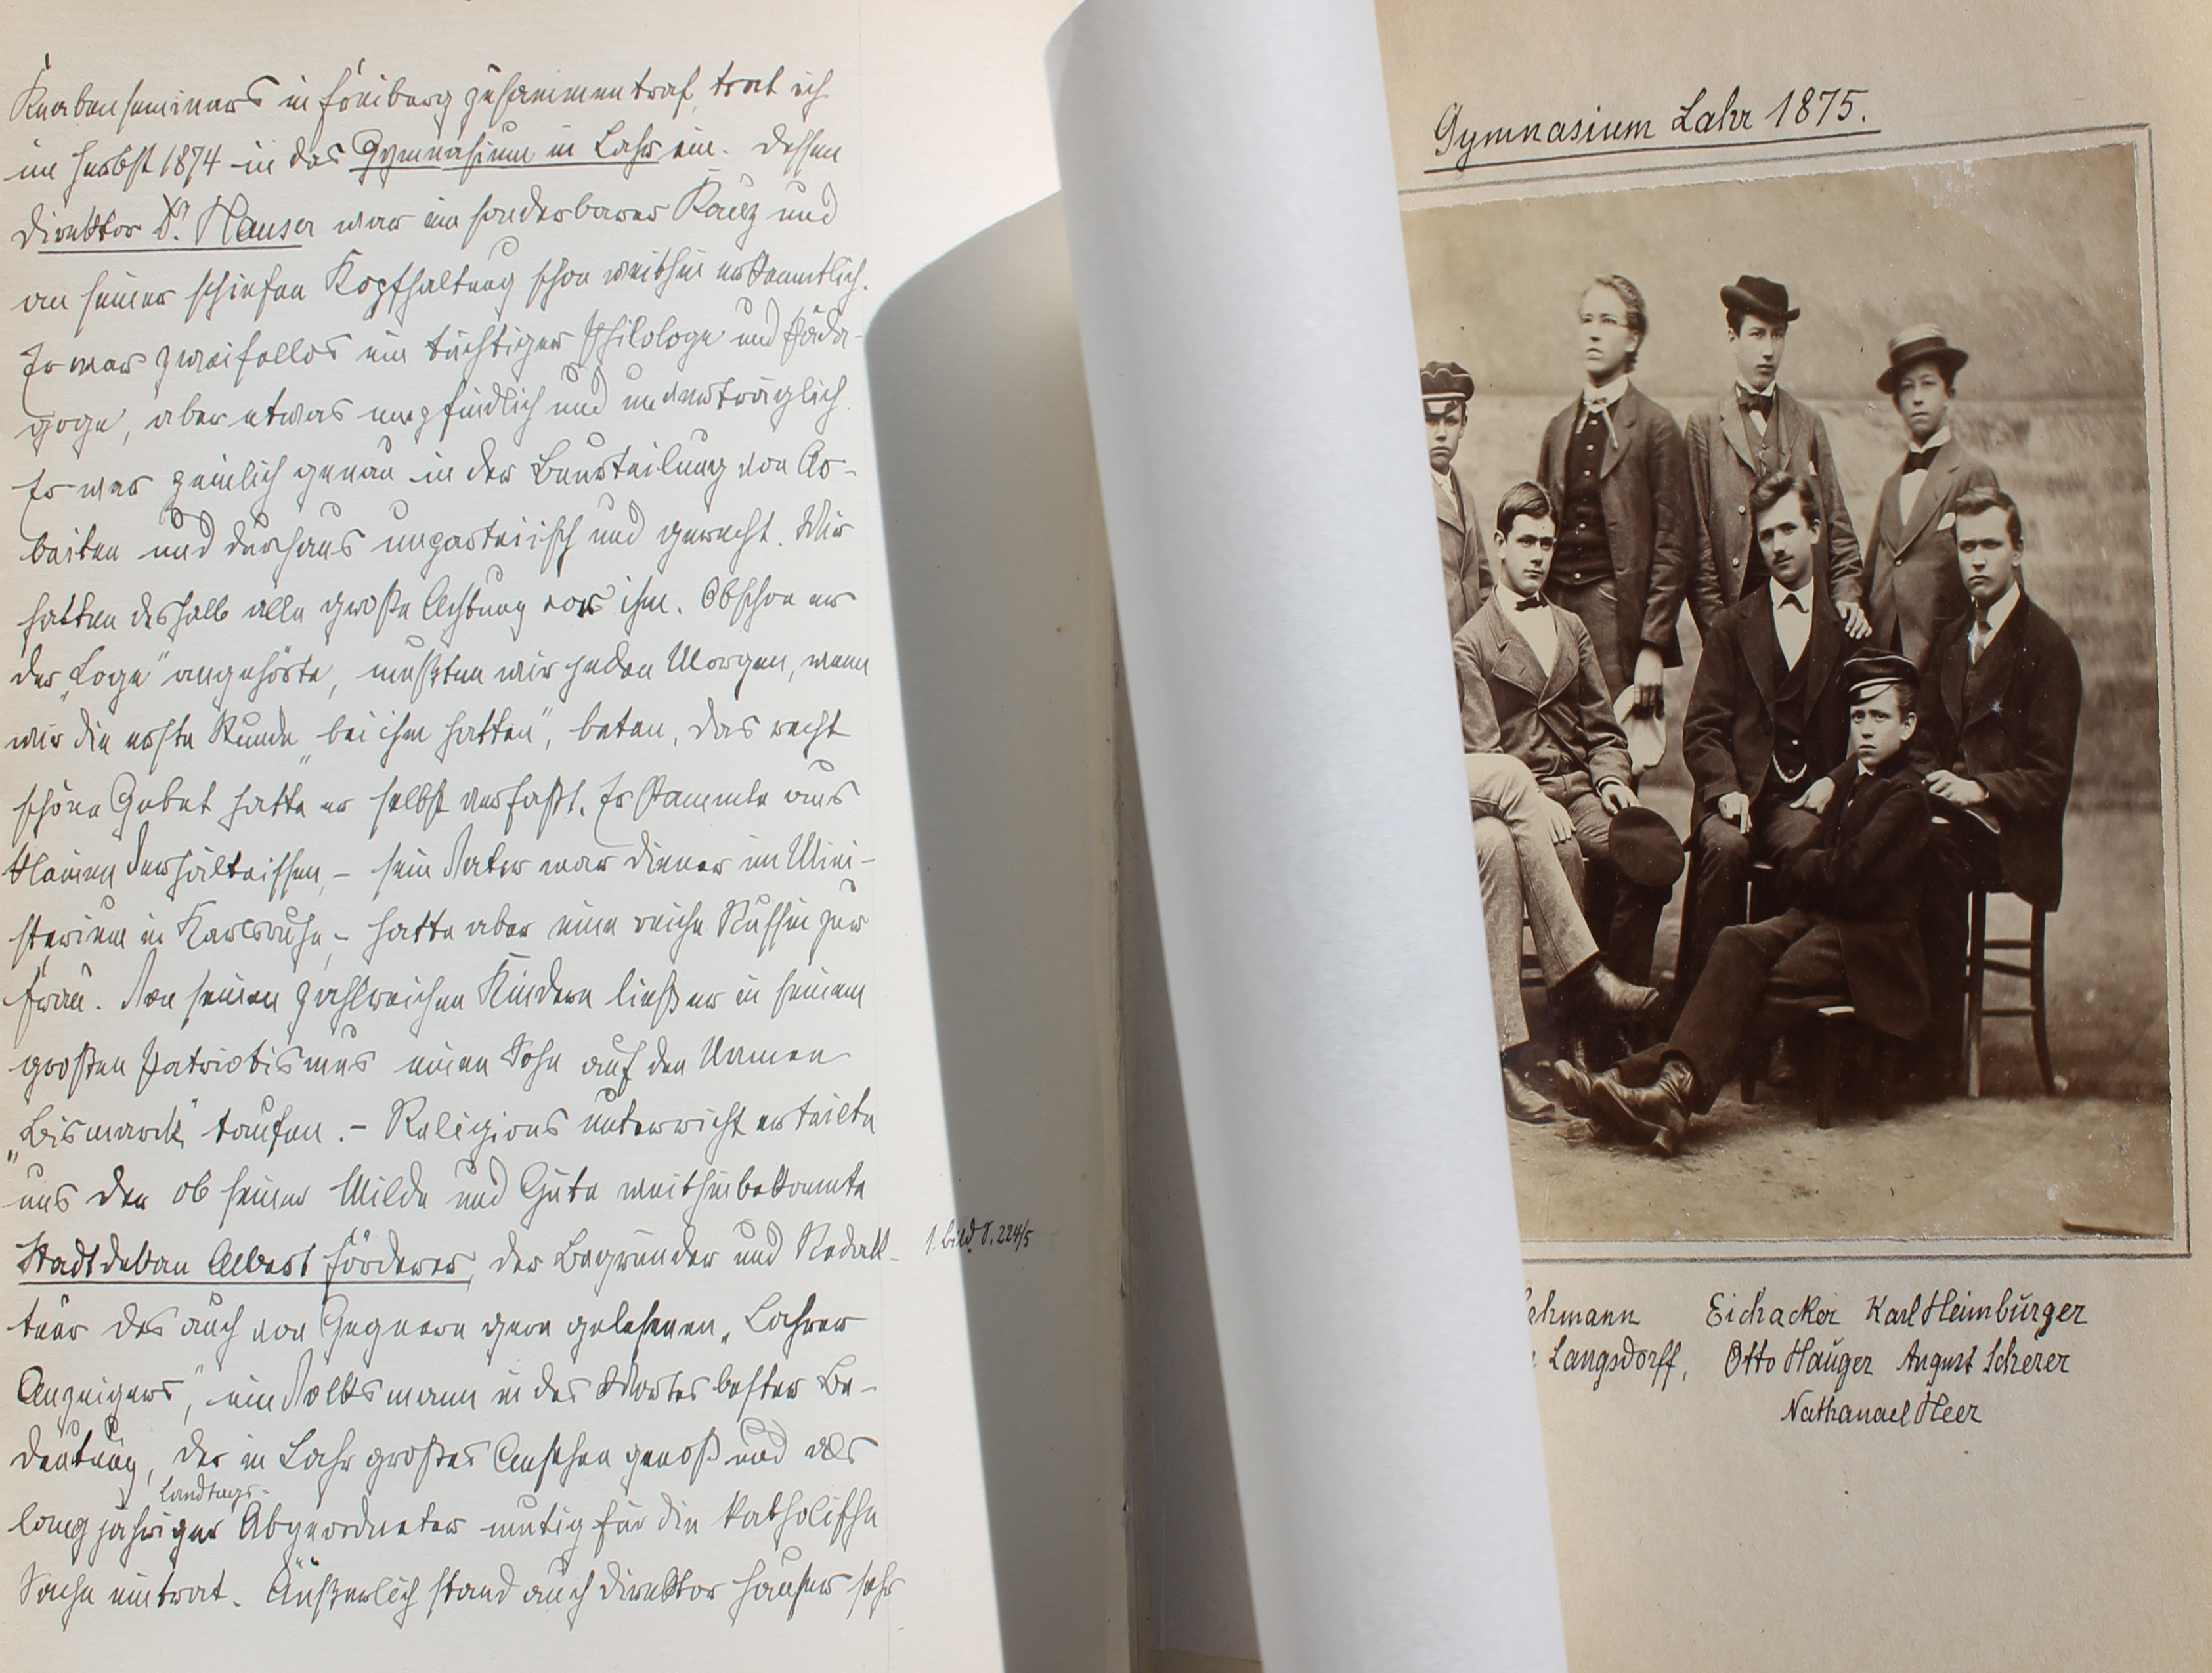 Knabenseminars in Freiburg zusammentraf, trat ich
im Herbst 1874 in das Gymnasium in Lahr ein. Dessen
Direktor Dr. Hauser war ein sonderbarer Kauz und
an seiner schiefen Kopfhaltung schon weithin erkenntlich.
Er war zweifellos ein tüchtiger Philologe und Päda-
goge, aber etwas empfindlich und unverträglich.
Er war peinlich genau in der Beurteilung von Ar-
beiten und durchaus unparteiisch und gerecht. Wir
hatten deshalb alle große Achtung vor ihm. Obschon er
der „Loge" angehörte, mußten wir jeden Morgen, wenn
wir die erste Stunde „bei ihm hatten", beten, das recht
schöne Gebet hatte er selbst verfaßt. Er stammte aus
kleinen Verhältnissen, – sein Vater war Diener im Mini-
sterium in Karlsruhe, – hatte aber eine reiche Russin zur
Frau. Von seinen zahlreichen Kindern ließ er in seinem
großen Patriotismus einen Sohn auf den Namen
„Bismarck" taufen. – Religionsunterricht erteilte
uns der ob seiner Milde und Güte weithinbekannte
Stadtdekan Albert Förderer, der Begründer und Redak-
teur des auch von Gegnern gern gelesenen „Lahrer
Anzeigers", ein Volksmann in des Wortes bester Be-
deutung, der in Lahr großes Ansehen genoß und als
Landtags-
langjähriger Abgeordneter mutig für die katholische
Sache eintrat. Äußerlich stand auch Direktor Hauser sehr
s. Bild S. 224/5
Gymnasium Lahr 1875.
ehmann Eichacker Karl Heimburger
Langsdorff, Otto Hauger August Scherer
Nathanael Heer